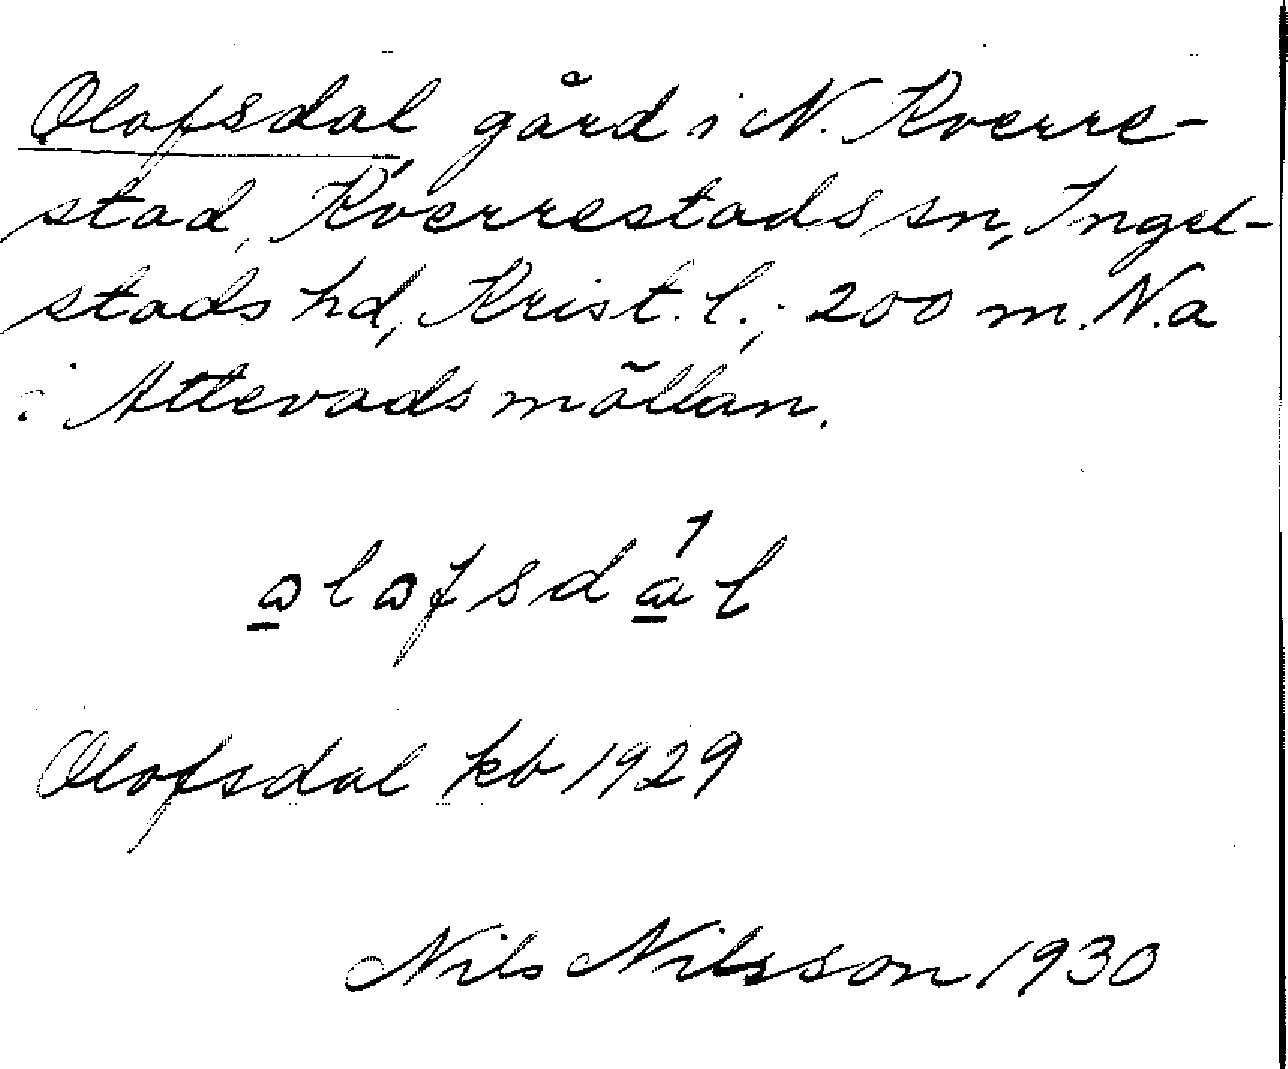 Olofsdal gård i N. Kverre-
stad, Kverrestads sn, Ingel-
stads hd, Krist. l.; 200 m. N.a
i Attevadsmöllan.
olofsdál
Olofsdal kb 1929
Nils Nilsson 1930